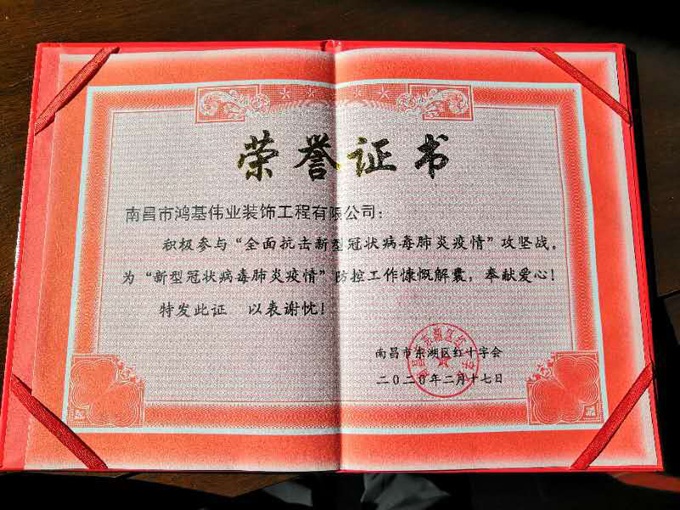 荣誉证书
南昌市鸿基伟业装饰工程有限公司：
积极参与“全面抗击新型冠状病毒肺炎疫情”攻坚战，
为“新型冠状病毒肺炎疫情”防控工作慷慨解囊，奉献爱心！
特发此证 以表谢忱！
南昌市东湖区红十字会
二〇二〇年二月十七日